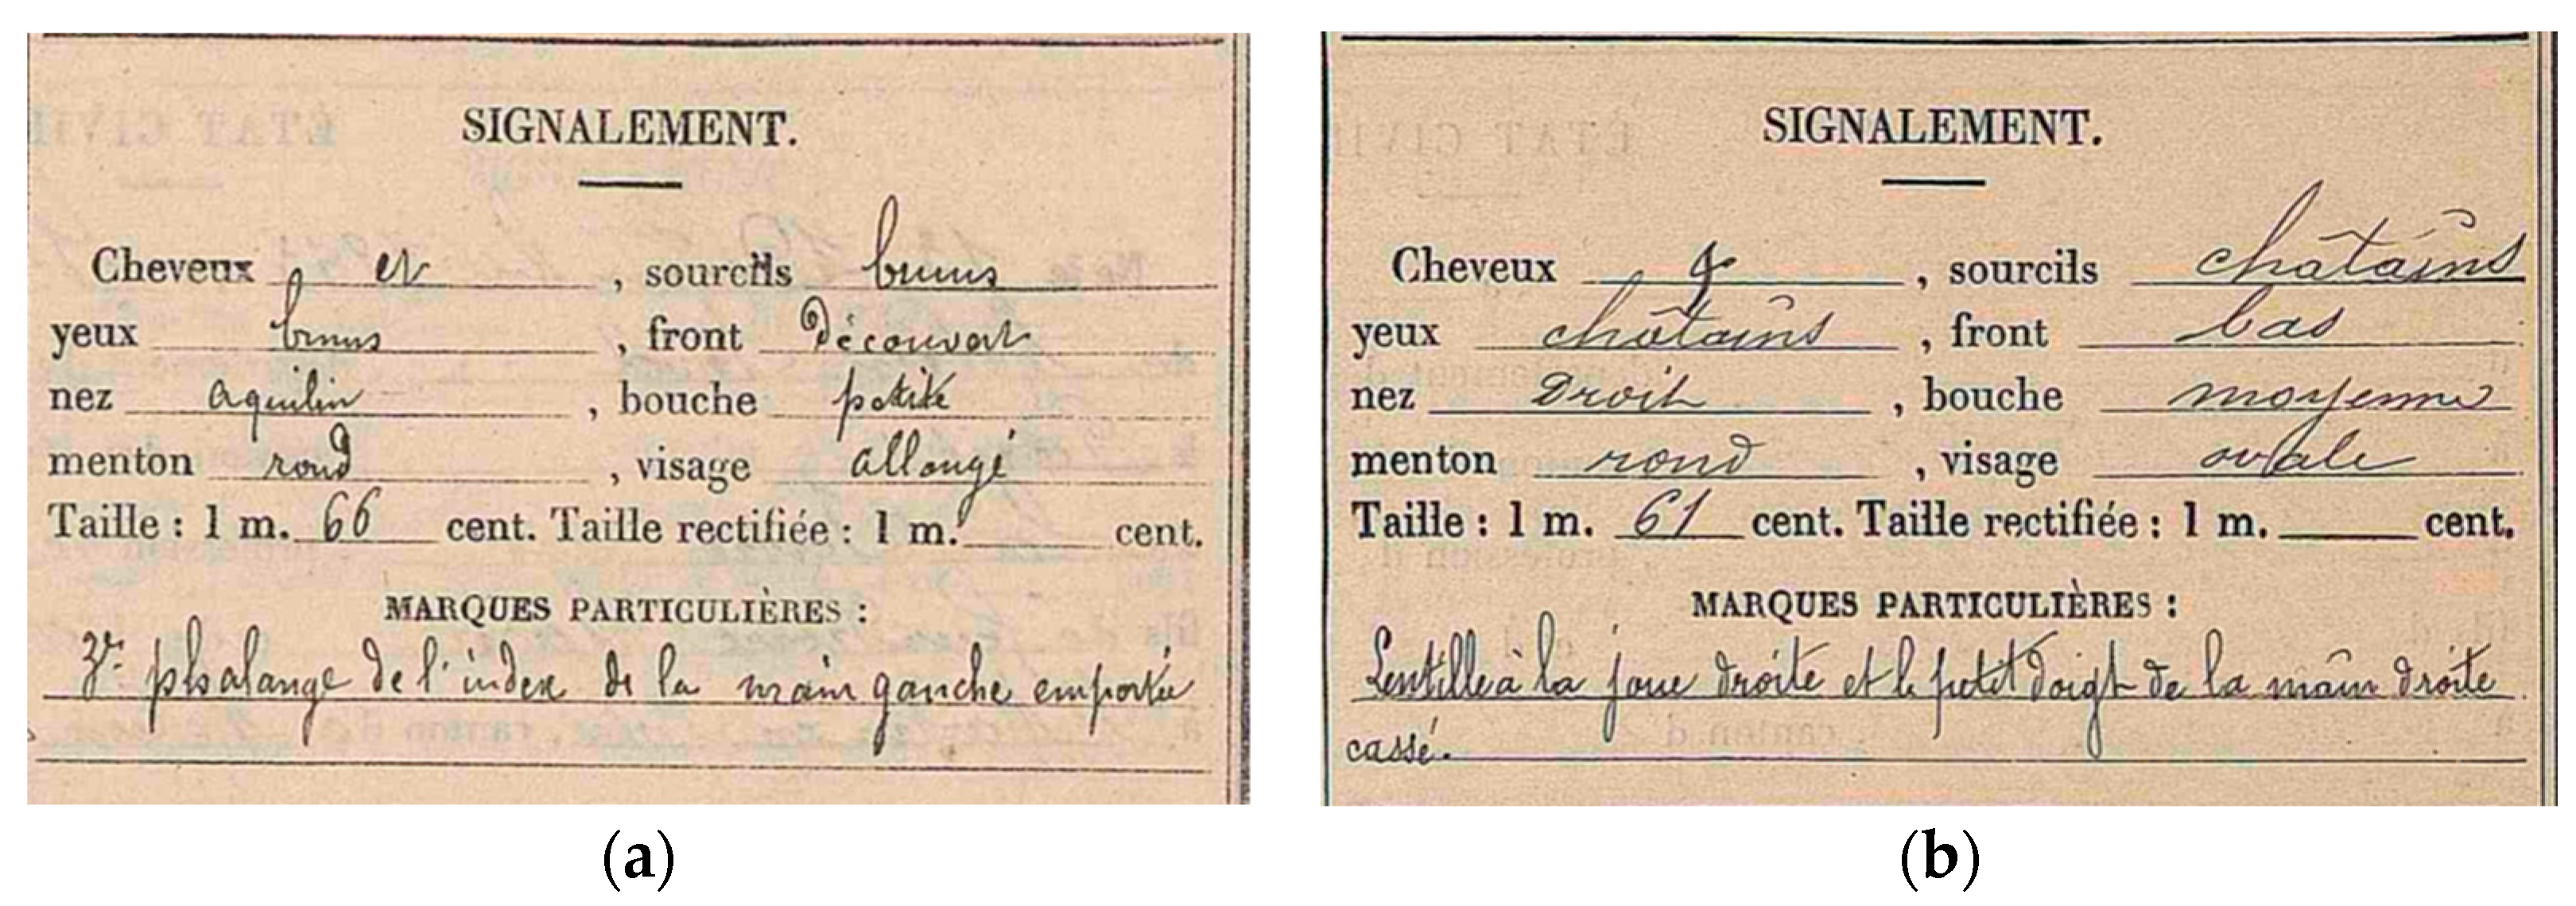 SIGNALEMENT.
Cheveux et , sourcils bruns
yeux bruns , front Découvert
nez aquilin , bouche petite
menton rond , visage allongé
Taille : 1 m. 66 cent. Taille rectifiée : 1 m. cent.
MARQUES PARTICULIÈRES :
3e phalange de l'index de la main gauche emportée
(a)
SIGNALEMENT.
Cheveux & , sourcils châtains
yeux châtains , front bas
nez Droit , bouche moyenne
menton rond , visage ovale
Taille : 1 m. 61 cent. Taille rectifiée : 1 m. cent.
MARQUES PARTICULIÈRES :
Lentille à la joue droite et le petit doigt de la main droite
cassé.
(b)